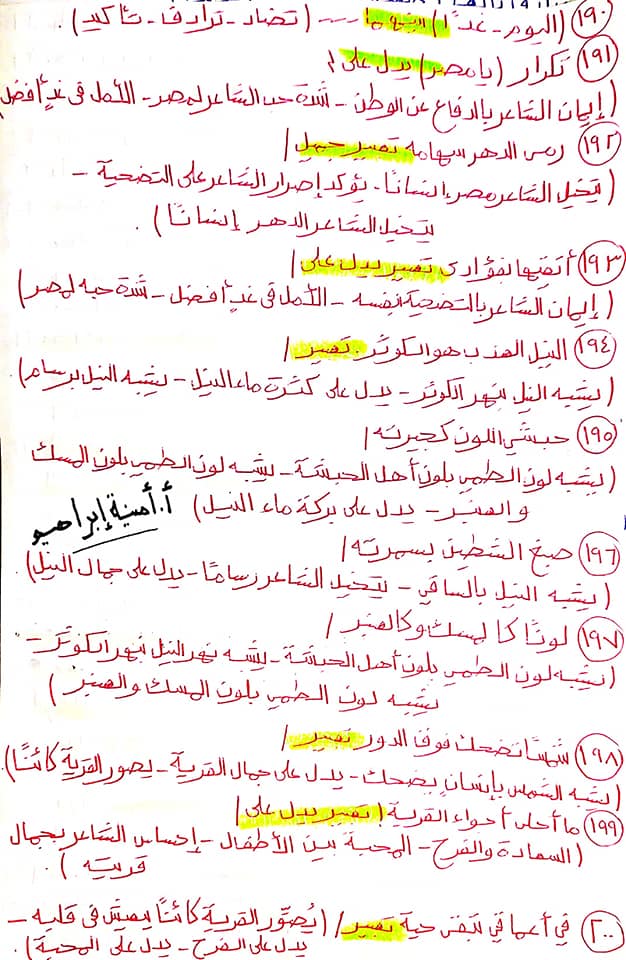 ١٩٠) (اليوم - غدًا) بينهما ـــ (تضاد - ترادف - تأكيد).
١٩١) تكرار (يا مصر) يدل على /
(إيمان الشاعر بالدفاع عن الوطن - شدة حب الشاعر لمصر - الأمل فى غدٍ أفضل)
١٩٢) رمى الدهر سهامه تعبير جميل /
(تخيل الشاعر مصر إنسانًا - يؤكد إصرار الشاعر على التضحية -
يتخيل الشاعر الدهر إنسانًا).
١٩٣) أتقيها بفؤادى تعبير يدل على /
(إيمان الشاعر بالتضحية بنفسه - الأمل فى غدٍ أفضل - شدة حبه لمصر)
١٩٤) النيل العذب هو الكوثر. تعبير /
(يشبه النيل بنهر الكوثر - يدل على كثرة ماء النيل - يشبه النيل برسام).
١٩٥) حبشي اللون كجيرته /
(يشبه لون الطمي بلون أهل الحبشة - يشبه لون الطمي بلون المسك
والعنبر - يدل على بركة ماء النيل)
أ. أمنية إبراهيم
١٩٦) صبغ الشطين بسمرته /
(يشبه النيل بالساقي - يتخيل الشاعر رسامًا - يدل على جمال النيل).
١٩٧) لونًا كالمسك وكالعنبر /
(يشبه لون الطمي بلون أهل الحبشة - يشبه نهر النيل بنهر الكوثر -
يشبه لون الطمي بلون المسك والعنبر)
١٩٨) شمسًا تضحك فوق الدور تعبير /
(يشبه الشمس بإنسان يضحك - يدل على جمال القرية - يصور القرية كائنًا).
١٩٩) ما أحلى أجواء القرية (تعبير يدل على /
(السعادة والفرح - المحبة بين الأطفال - إحساس الشاعر بجمال
قريته).
٢٠٠) في أعماقي تبقى حية تعبير / (يُصوِّر القرية كائنًا يعيش فى قلبه -
يدل على الفرح - يدل على المحبة).